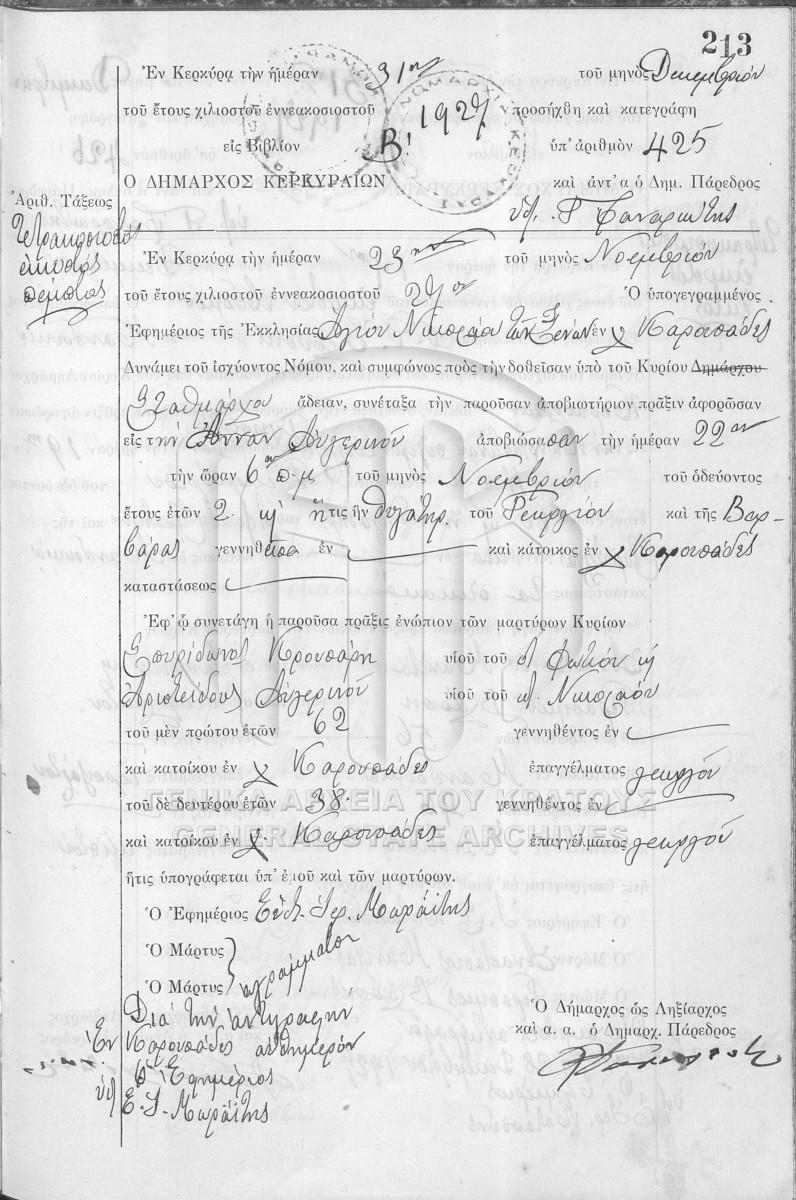 213
Ἐν Κερκύρᾳ τὴν ἡμέραν 31ην τοῦ μηνὸς Δεκεμβρίου
τοῦ ἔτους χιλιοστοῦ ἐννεακοσιοστοῦ 1927 προσήχθη καὶ κατεγράφη
εἰς Βιβλίον Β! ὑπ' ἀριθμὸν 425
Ο ΔΗΜΑΡΧΟΣ ΚΕΡΚΥΡΑΙΩΝ καὶ ἀντ' α ὁ Δημ. Πάρεδρος
Ἀριθ. Τάξεως
Τετρακοσιοστὸς
εἰκοστὸς
πέμπτος
Ἐν Κερκύρᾳ τὴν ἡμέραν 23ην τοῦ μηνὸς Νοεμβρίου
τοῦ ἔτους χιλιοστοῦ ἐννεακοσιοστοῦ 27ου Ὁ ὑπογεγραμμένος
Ἐφημέριος τῆς Ἐκκλησίας Ἁγίου Νικολάου τῶν Ξένων ἐν χ Καρουσάδες
Δυνάμει τοῦ ἰσχύοντος Νόμου, καὶ συμφώνως πρὸς τὴν δοθεῖσαν ὑπὸ τοῦ Κυρίου Δημάρχου
Σταθμάρχου ἄδειαν, συνέταξα τὴν παροῦσαν ἀποβιωτήριον πρᾶξιν ἀφορῶσαν
εἰς τὴν Ἄνναν Αὐγερινοῦ ἀποβιώσασαν τὴν ἡμέραν 22αν
τὴν ὥραν 6ην π.μ. τοῦ μηνὸς Νοεμβρίου τοῦ ὁδεύοντος
ἔτους ἐτῶν 2. ἥτις ἦν θυγάτηρ τοῦ Γεωργίου καὶ τῆς Βαρ-
βάρας γεννηθεῖσα ἐν καὶ κάτοικος ἐν χ Καρουσάδες
καταστάσεως
Ἐφ' ᾧ συνετάγη ἡ παροῦσα πρᾶξις ἐνώπιον τῶν μαρτύρων Κυρίων
Σπυρίδωνος υἱοῦ τοῦ Φωτίου
Ἀριστείδους Αὐγερινοῦ υἱοῦ τοῦ Νικολάου
τοῦ μὲν πρώτου ἐτῶν 62 γεννηθέντος ἐν
καὶ κατοίκου ἐν χ Καρουσάδες ἐπαγγέλματος γεωργοῦ
τοῦ δὲ δευτέρου ἐτῶν 38. γεννηθέντος ἐν
ΓΕΝΙΚΑ ΑΡΧΕΙΑ ΤΟΥ ΚΡΑΤΟΥΣ
GENERAL STATE ARCHIVES
καὶ κατοίκου ἐν χ. Καρουσάδες ἐπαγγέλματος γεωργοῦ
ἥτις ὑπογράφεται ὑπ' ἐμοῦ καὶ τῶν μαρτύρων.
Ὁ Ἐφημέριος
Ὁ Μάρτυς
Ὁ Μάρτυς ἀγράμματοι
Διὰ τὴν ἀντιγραφὴν
Ἐν Καρουσάδες αὐθημερόν
Ὁ Ἐφημέριος
Ὁ Δήμαρχος ὡς Ληξίαρχος
καὶ α. α. ὁ Δημαρχ. Πάρεδρος